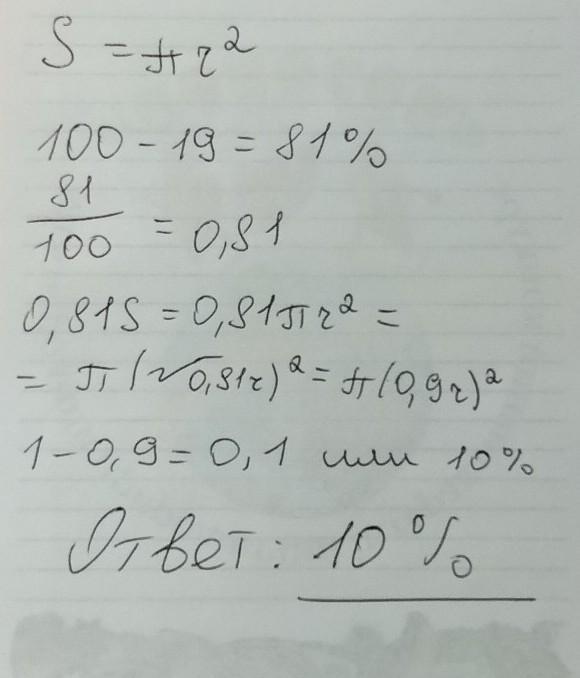 S = πr²
100 - 19 = 81%
81/100 = 0,81
0,81S = 0,81πr² =
= π(√0,81r)² = π(0,9r)²
1 - 0,9 = 0,1 или 10%
Ответ: 10%